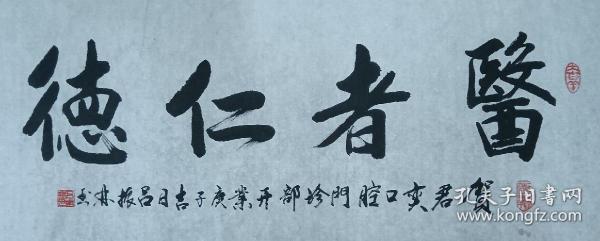 醫者仁德
賀君奕口腔門診部开業庚子吉日呂振林书
孔夫子旧书网
www.kongfz.com